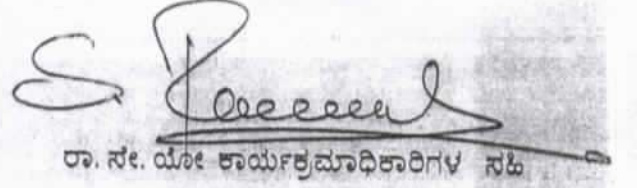 ರಾ. ಸೇ. ಯೋ ಕಾರ್ಯಕ್ರಮಾಧಿಕಾರಿಗಳ ಸಹಿ